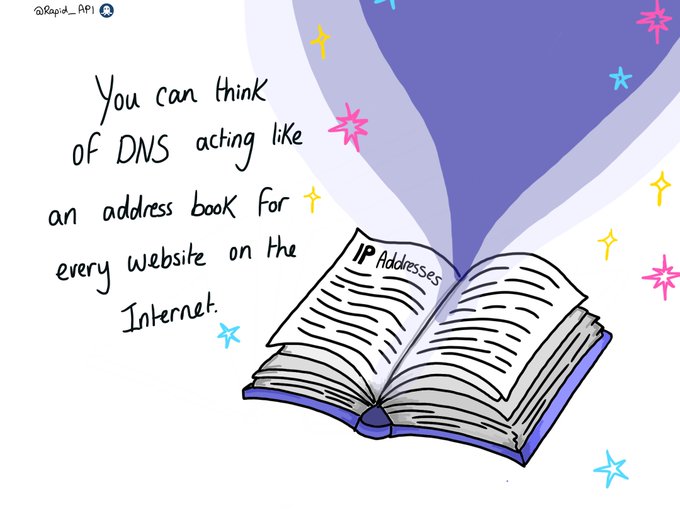 @Rapid_API
You can think
of DNS acting like
an address book for
every website on the
Internet.
IP Addresses